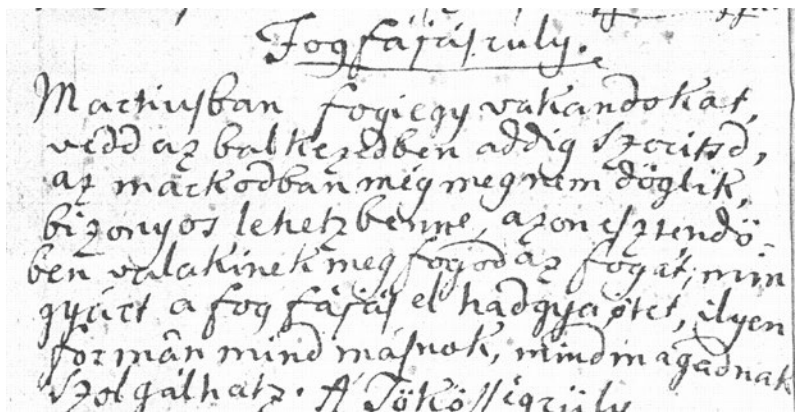 Fogfájásruly.
Martiusban fogj egy vakandokat,
vedd az balkezedben addig szoritsd,
az markodban még meg nem döglik,
bizonyos lehetz benne, azon esztendö-
ben valakinek meg fogod az fogát, min
gyárt a fog fájás el hadgya őtet, ilyen
formán mind másnok, mind magadnak
szolgálhatz. A